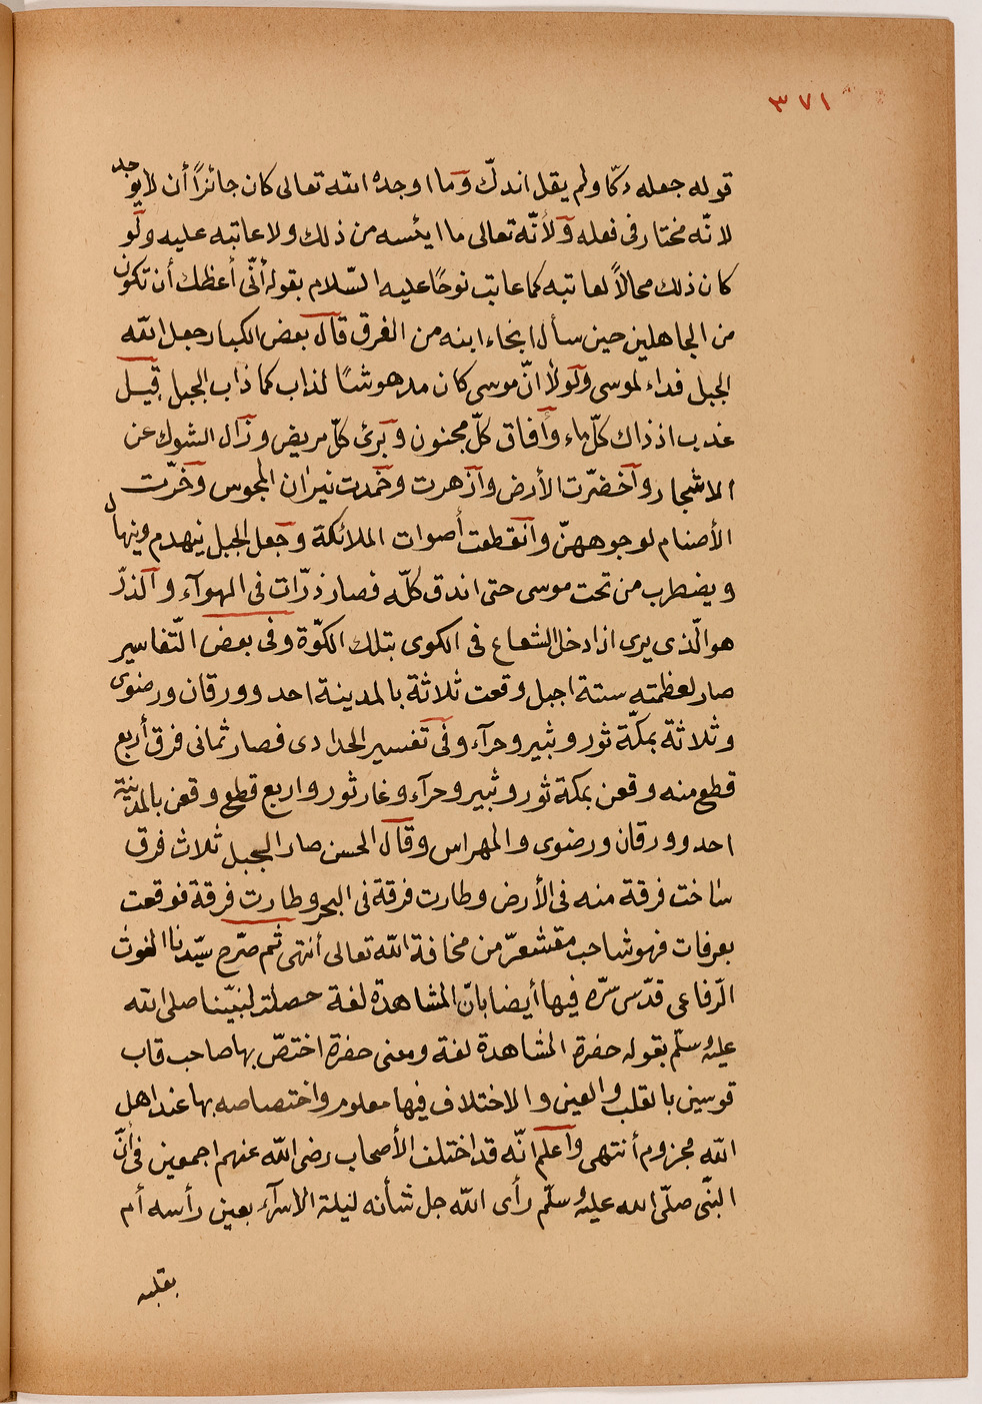 ٣٧١
قوله جعله دكّا ولم يقل اندكّ وما اوجده الله تعالى كان جائزاً أن لا يوجد
لانّه مختار فى فعله ولأنّه تعالى ما ايئسه من ذلك ولا عاتبه عليه ولو
كان ذلك محالاً لعاتبه كما عاتب نوحًا عليه السّلام بقوله أنّى أعظك أن تكون
من الجاهلين حين سأل انجاء ابنه من الغرق قال بعض الكبار جعل الله
الجبل فداء لموسى ولولا انّ موسى كان مدهوشًا لذاب كما ذاب الجبل قيل
عذب اذ ذاك كلّ ماء وأفاق كلّ مجنون وبرئ كلّ مريض وزال الشوك عن
الاشجار واخضرّت الأرض وازهرت وخمدت نيران المجوس وخرّت
الأصنام لوجوههنّ وانقطعت أصوات الملائكة وجعل الجبل ينهدم وينهال
ويضطرب من تحت موسى حتى اندق كلّه فصار ذرّات فى الهوآء والذرّ
هو الّذى يرى اذا دخل الشعاع فى الكوى بتلك الكوّة وفى بعض التّفاسير
صار لعظمته ستة اجبل وقعت ثلاثة بالمدينة احد وورقان ورضوى
وثلاثة بمكّة ثور وثبير وحرآء وفى تفسير الحدادى فصار ثمانى فرق أربع
قطع منه وقعن بمكة ثور وثبير وحرآء وغار ثور واربع قطع وقعن بالمدينة
احد وورقان ورضوى والمهراس وقال الحسن صار الجبل ثلاث فرق
ساخت فرقة منه فى الأرض وطارت فرقة فى البحر وطارت فرقة فوقعت
بعرفات فهو شاحب مقشعرّ من مخافة الله تعالى أنتهى ثم صرّح سيّدنا الغوث
الرّفاعى قدّس سرّه فيها أيضا بانّ المشاهدة لغة حصلت لنبيّنا صلى الله
عليه وسلّم بقوله حضرة المشاهدة لغة ومعنى حضرة اختصّ بها صاحب قاب
قوسين بالقلب والعين والاختلاف فيها معلوم واختصاصه بها عند اهل
الله مجزوم أنتهى واعلم انّه قد اختلف الأصحاب رضى الله عنهم اجمعين فى أنّ
النبّى صلّى الله عليه وسلّم رأى الله جل شأنه ليلة الاسرآء بعين رأسه أم
بقلبه